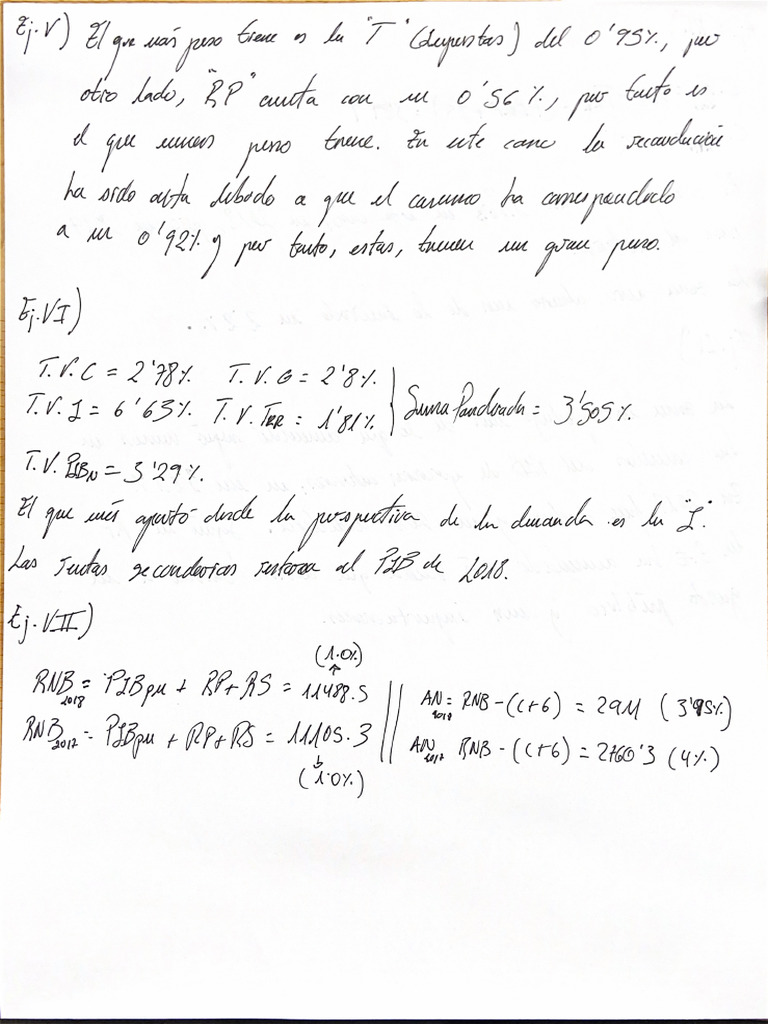 Ej. V) El que más peso tiene es la "T" (impuestos) del 0'95%, por
otro lado, "RP" cuenta con un 0'56%, por tanto es
el que menos peso tiene. En este caso la recaudación
ha sido alta debido a que el consumo ha correspondido
a un 0'92% y por tanto, estas, tienen un gran peso.
Ej. VI)
T.V.C = 2'78% T.V.G = 2'8%
T.V.I = 6'63% T.V.TRR = 1'81% Suma Ponderada = 3'505%
T.V.PIBN = 3'29%
El que más aportó desde la perspectiva de la demanda es la "I".
Las rentas secundarias restaron al PIB de 2018.
Ej. VII)
(1.0%)
RNB2018 = PIBpm + RP + RS = 11488.5 AN2018 = RNB - (C+G) = 2911 (3'95%)
RNB2017 = PIBpm + RP + RS = 11105.3 AN2017 RNB - (C+G) = 2760'3 (4%)
(1.0%)